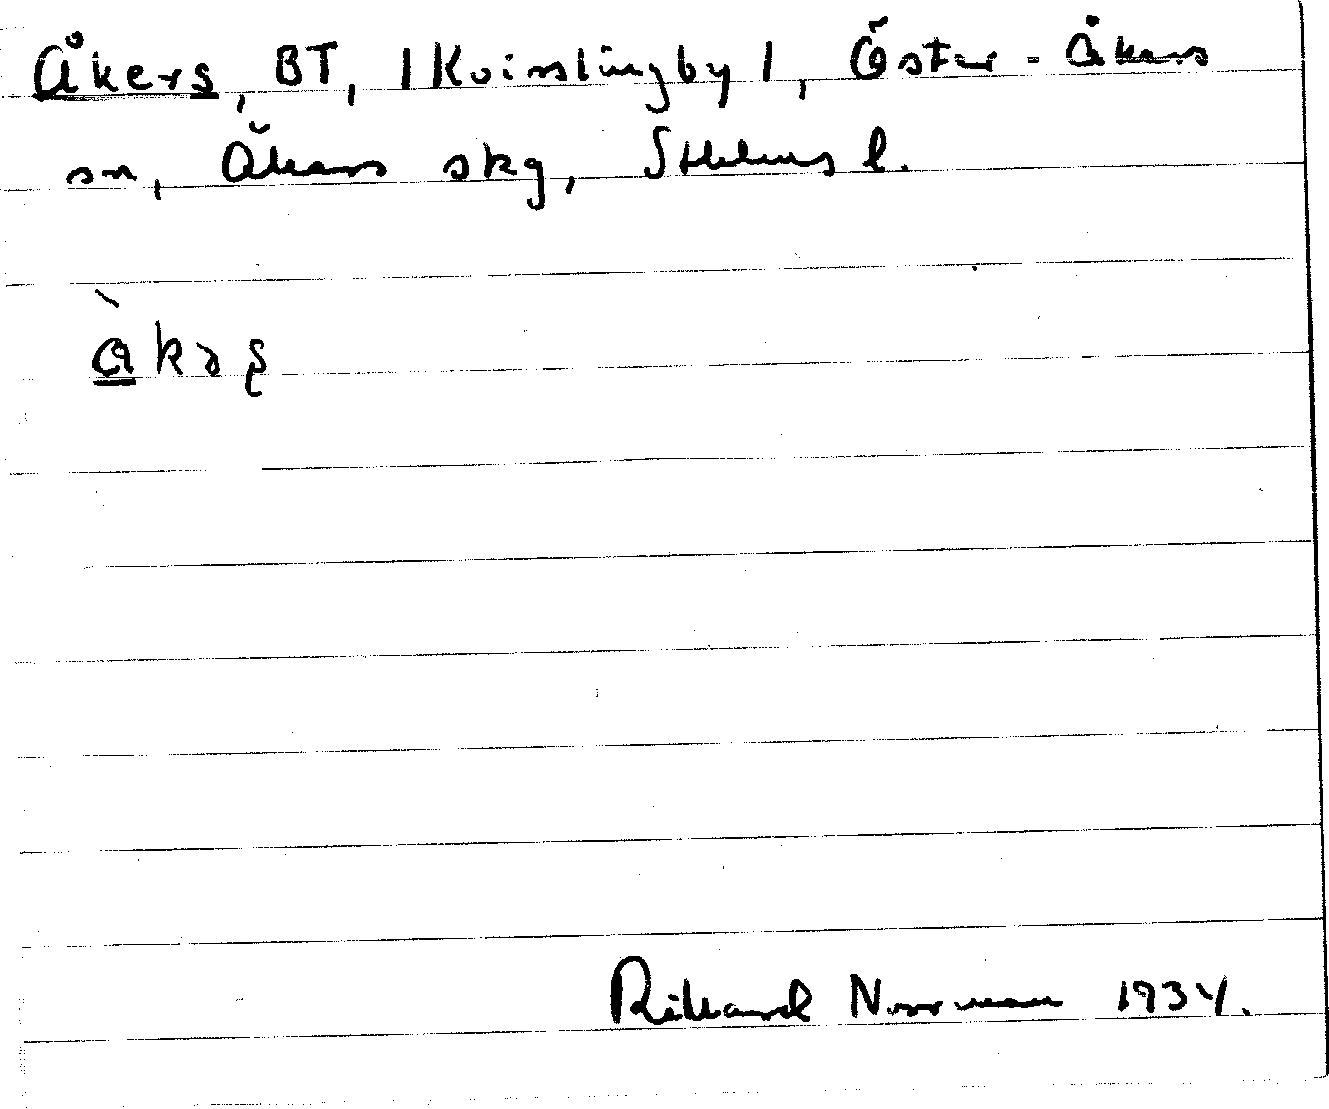 Åkers, BT, /Kvisslingby/, Öster-Åkers
sn, Åkers skg, Sthlms l.
Rikard Norrman 1934.